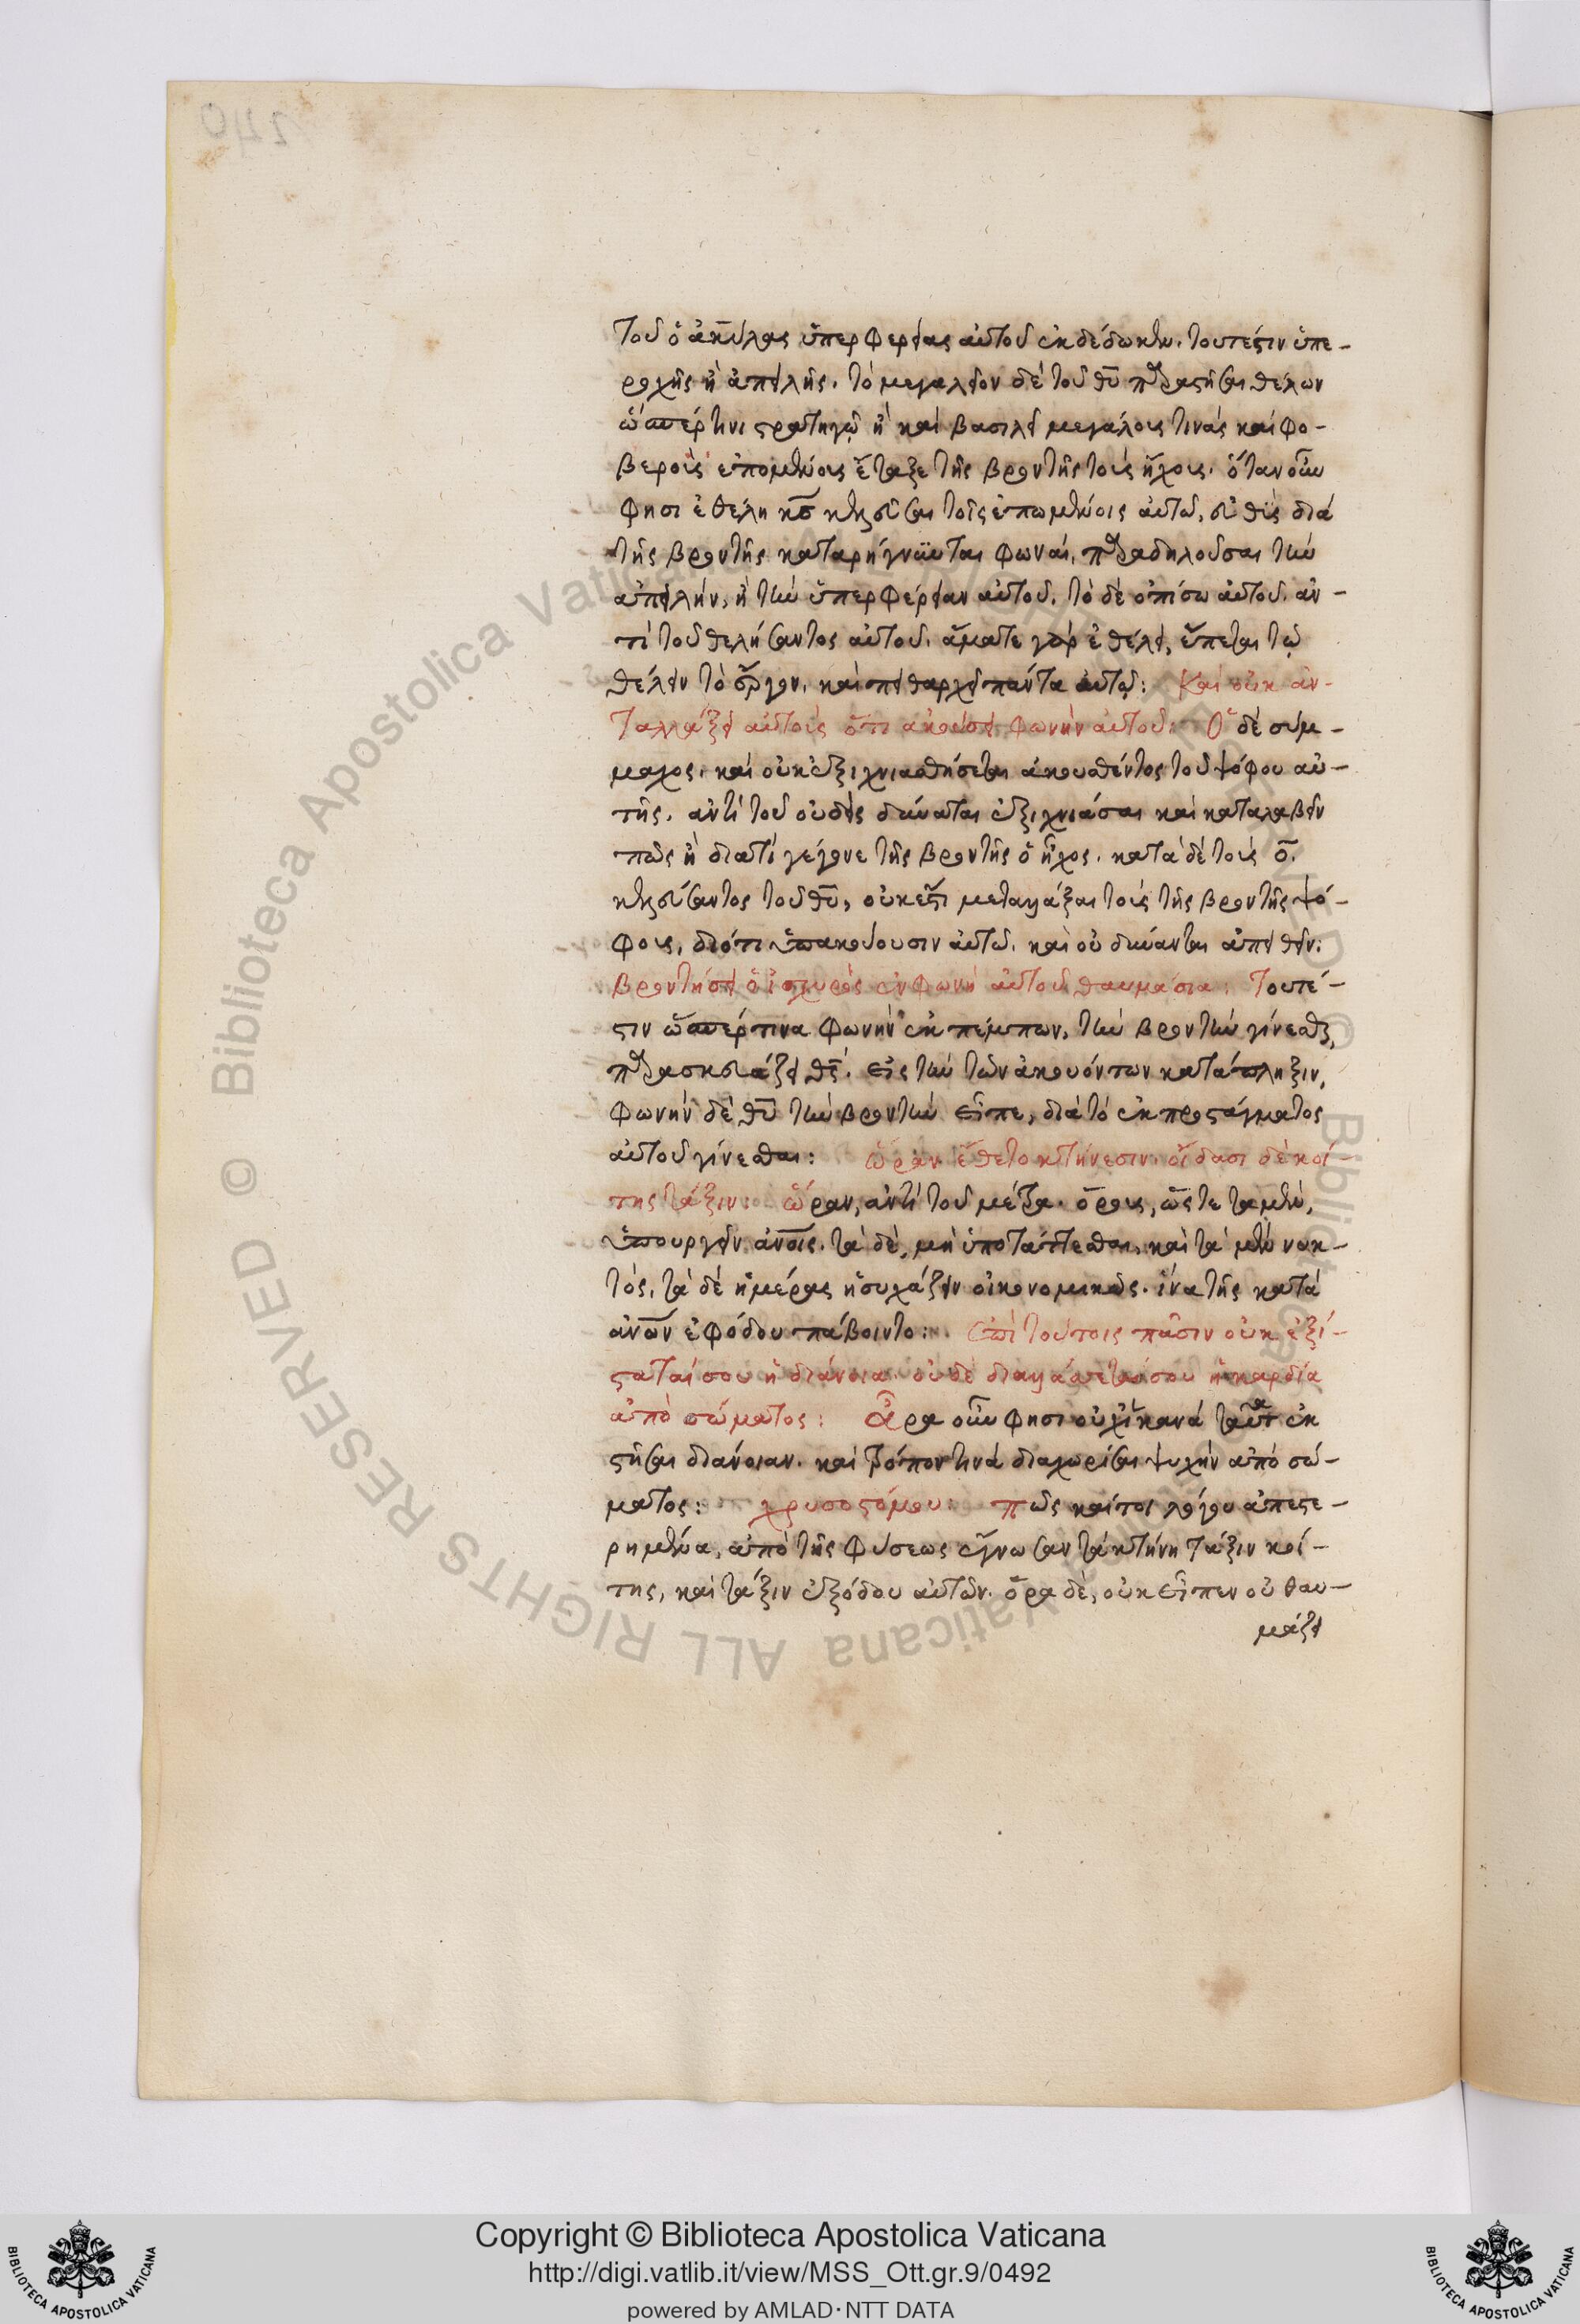 του ὁ ἀκύλας ὑπερφερείας αὐτοῦ ἐκδέδωκεν. τουτέστιν ὑπε-
ροχῆς ἢ ἀπειλῆς. τὸ μεγαλεῖον δὲ τοῦ θῦ παραστῆσαι θέλων
ὥσπέρ τινι στρατηγῷ ἢ καὶ βασιλεῖ μεγάλους τινὰς καὶ φο-
βεροὺς ἑπομένους ἔταξε τῆς βροντῆς τοὺς ἤχους. ὅταν οὖν
φησι ἐθέλη κς κελεῦσαι τοῖς ἑπωμένοις αὐτῶ, εὐθὺς διὰ
τῆς βροντῆς καταρήγνϋνται φωναί, παραδηλοῦσαι τὴν
ἀπειλήν, ἢ τὴν ὑπερφέρειαν αὐτοῦ. τὸ δὲ ὀπίσω αὐτοῦ. ἀν-
τὶ τοῦ θελήσαντος αὐτοῦ. ἅματε γὰρ ἐθέλει, ἕπεται τῷ
θέλειν τὸ ἔργον. καὶ πειθαρχεῖ πάντα αὐτῷ: Καὶ οὐκ ἀν-
ταλλάξει αὐτοὺς ὅτι ἀκούσει φωνὴν αὐτοῦ: Ὁ δὲ σύμ-
μαχος. καὶ οὐκ ἐξιχνιασθήσεται ἀκουσθέντος τοῦ ψόφου αὐ-
τῆς. ἀντὶ τοῦ οὐδεὶς δύναται ἐξιχνιάσαι καὶ καταλαβεῖν
πῶς ἢ διατί γέγονε τῆς βροντῆς ὁ ἦχος. κατὰ δὲ τοὺς ο.
κελεύσαντος τοῦ θῦ, οὐκ ἔστι μεταλλάξαι τοὺς τῆς βροντῆς ψό-
φους, διότι ὑπακούουσιν αὐτῶ. καὶ οὐ δύνανται ἀπειθεῖν:
βροντήσει ὁ ἰσχυρὸς ἐν φωνῆ αὐτοῦ θαυμάσια: Τουτέ-
στιν ὥσπέρ τινα φωνὴν ἐκπέμπων, τὴν βροντὴν γίνεσθαι
παρασκευάζει θς. εἰς τὴν τῶν ἀκουόντων κατάπληξιν,
φωνὴν δὲ θῦ τὴν βροντὴν εἶπε, διὰ τὸ ἐκ προστάγματος
αὐτοῦ γίνεσθαι: ὥραν ἔθετο κτήνεσιν. οἴδασι δὲ κοί-
της τάξιν: ὥραν, ἀντὶ τοῦ μέτρα. ὅρους, ὥστε τὰ μὲν,
ὑπουργεῖν ἀνοις. τὰ δὲ, μὴ ὑποτάττεσθαι. καὶ τὰ μὲν νυκ-
τὸς, τὰ δὲ ἡμέρας ἡσυχάζειν οἰκονομικῶς. ἵνα τῆς κατὰ
ἀνων ἐφόδου παύοιντο: Ἐπὶ τούτοις πᾶσιν οὐκ ἐξί-
σταταί σου ἡ διάνοια. οὐδὲ διαλλάττεταί σου ἡ καρδία
ἀπὸ σώματος: ἆρα οὖν φησι οὐχ ἱκανὰ ταῦτα ἐκ
στῆσαι διάνοιαν. καὶ τρόπον τινὰ διαχωρίσαι ψυχὴν ἀπὸ σώ-
ματος: χρυσοστόμου: πῶς καίτοι λόγου ἀπεστε-
ρημένα, ἀπὸ τῆς φύσεως ἔγνωσαν τὰ κτήνη τάξιν κοί-
της, καὶ τάξιν ἐξόδου αὐτῶν. ὅρα δὲ, οὐκ εἶπεν οὐ θαυ-
μάζει
Copyright © Biblioteca Apostolica Vaticana
http://digi.vatlib.it/view/MSS_Ott.gr.9/0492
powered by AMLAD·NTT DATA